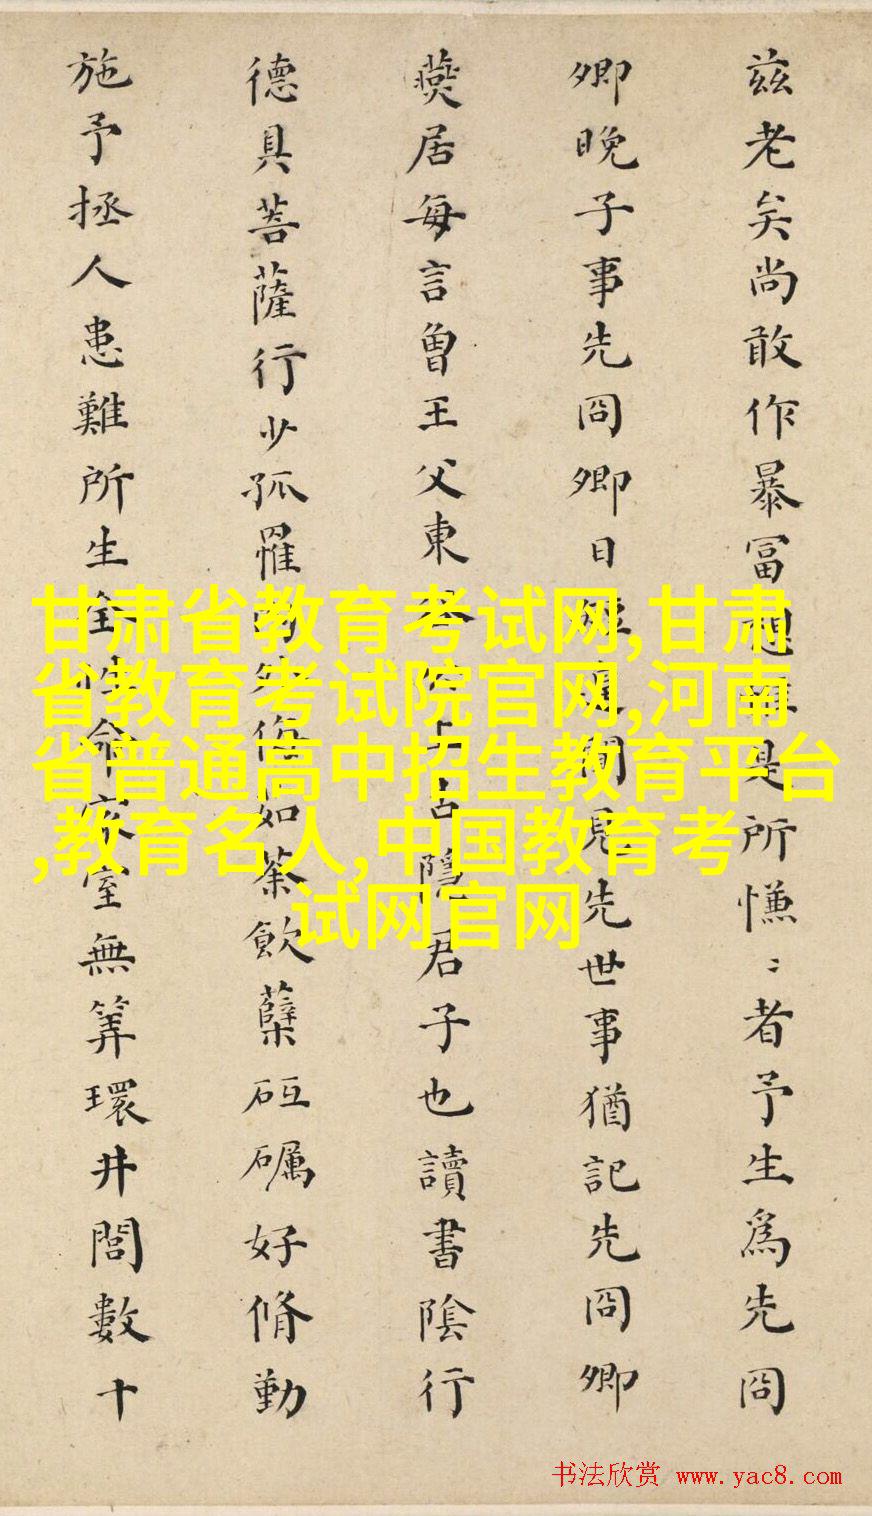 茲老矣尚敢作暴冨想是所慊〻者予生為先冏
卿晚子事先冏卿日見先世事猶記先冏卿
燕居每言曾王父東谷公上古隱君子也讀書陰行
德具菩薩行少孤罹外侮如荼飲蘗砥礪好脩勤
施予拯人患難所生全性命家室無筭環井閭數十
甘肃省教育考试网,甘肃
省教育考试院官网,河南
省普通高中招生教育平台
,教育名人,中国教育考
试网官网
书法欣赏 www.yac8.com